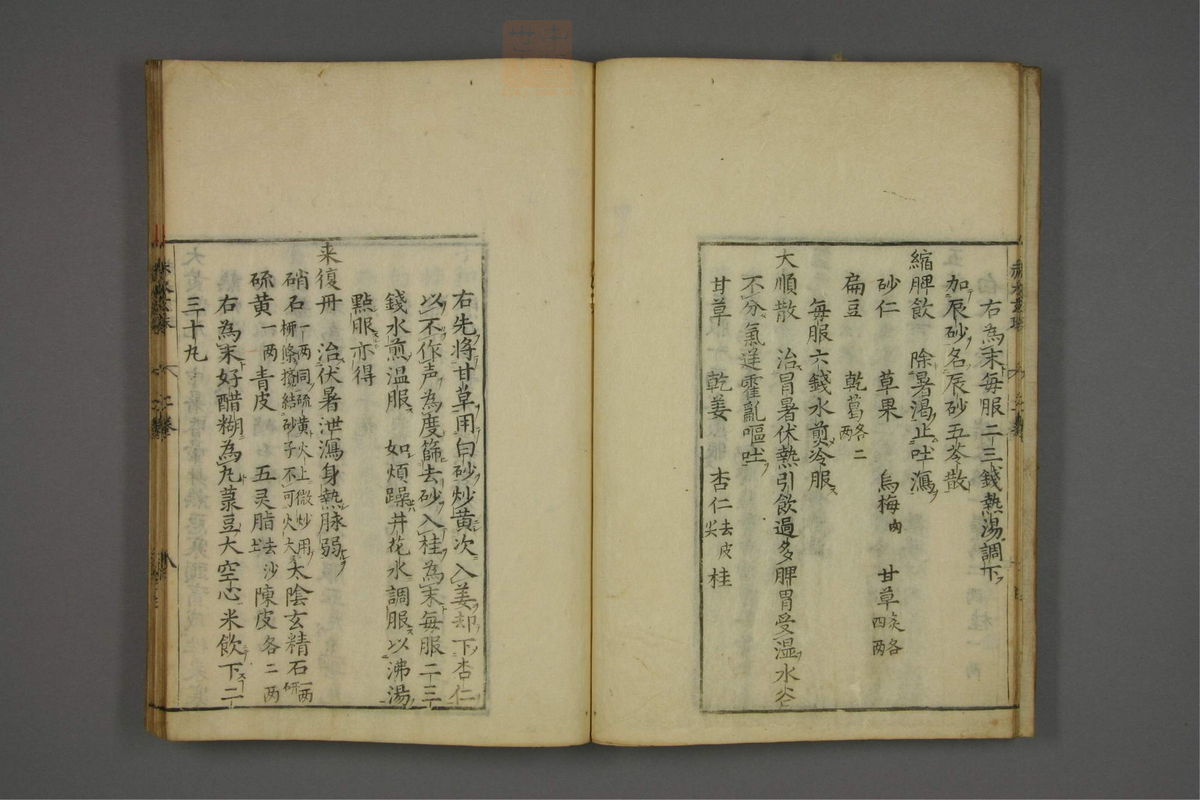 右為末毎服二三錢熱湯調下
加辰砂名辰砂五苓散
縮脾飲　除暑渇止吐瀉
砂仁　草果　烏梅肉　甘草炙各四两
扁豆　乾葛各二两
毎服六錢水煎冷服
大順散　治冒暑伏熱引飲過多脾胃受湿水谷
不分氣逆霍亂嘔吐
甘草　乾姜　杏仁去皮尖　桂
右先將甘草用白砂炒黄次入姜却下杏仁
以不作声為度篩去砂入桂為末毎服二三
錢水煎温服　如煩躁井花水調服以沸湯
點服亦得
来復丹　治伏暑泄瀉身熱脉弱
硝石一两同硫黄火上微炒用柳條搭結砂子不可火大　太陰玄精石一两研
硫黄一两　青皮　五灵脂去沙土　陳皮各二两
右為末好醋糊為丸菉豆大空心米飲下二
三十丸
二巻
八